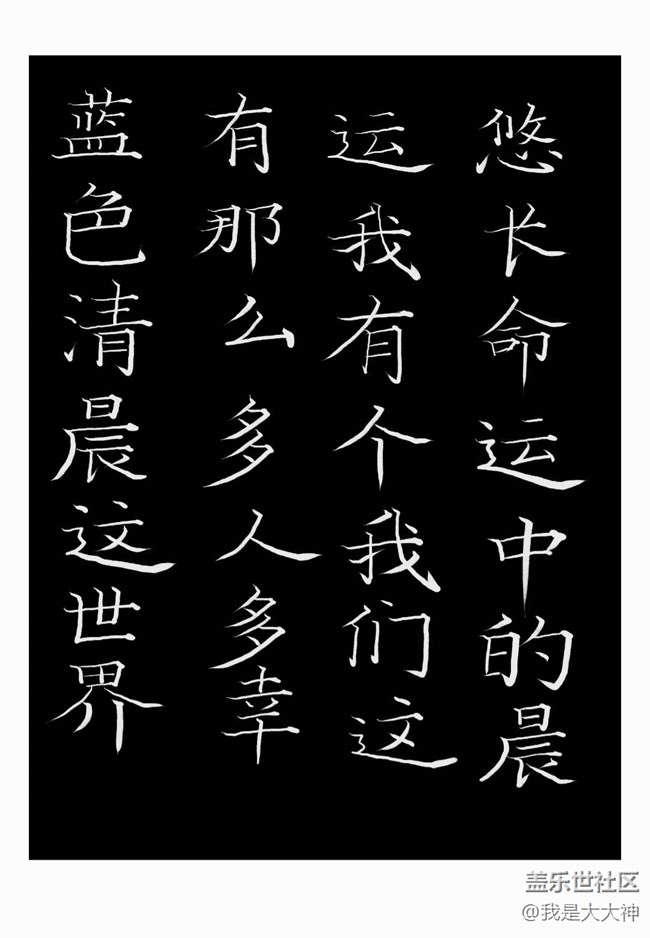 蓝色清晨这世界
有那么多人多幸
运我有个我们这
悠长命运中的晨
盖乐世社区
@我是大大神